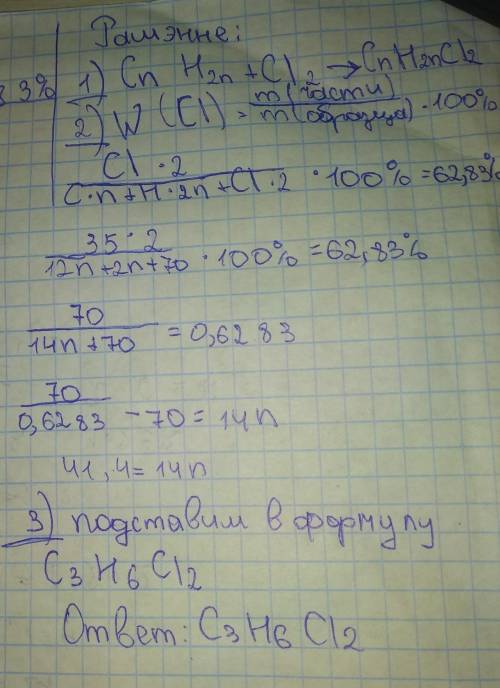 Рашэнне:
3%
1) CnH2n + Cl2 → CnH2nCl2
2) W (Cl) = m(части) / m(образца) · 100%
Cl · 2 / C·n+H·2n+Cl·2 · 100% = 62,83%
35 · 2 / 12n+2n+70 · 100% = 62,83%
70 / 14n+70 = 0,6283
70 / 0,6283 - 70 = 14n
41,4 = 14n
3) подставим в формулу
C3H6Cl2
Ответ: C3H6Cl2